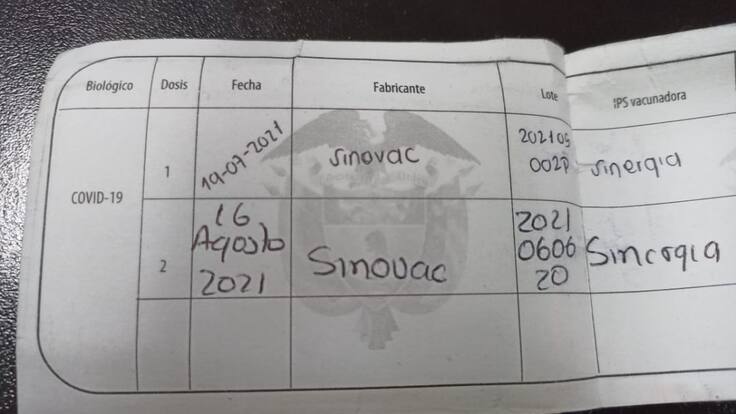 Biológico Dosis Fecha Fabricante Lote IPS vacunadora
COVID-19
1 19-07-2021 Sinovac 202105 sinergia
2 16 Agosto 2021 Sinovac 2021 0606 20 Sinergia